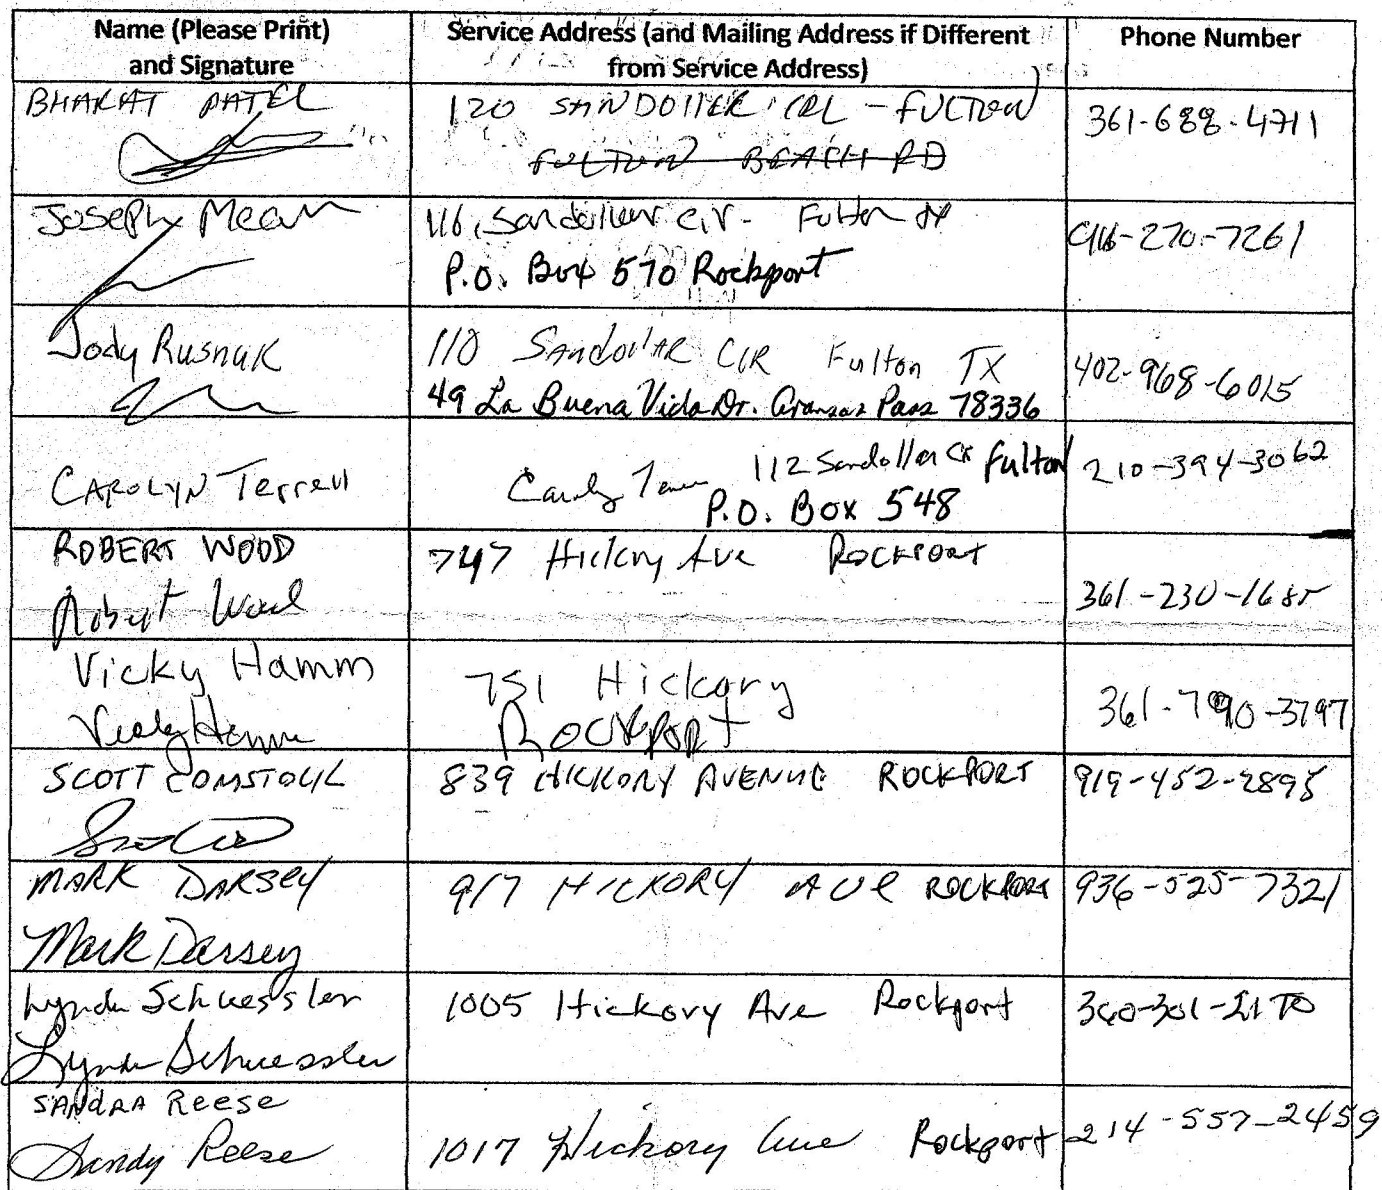 Name (Please Print)
and Signature
Service Address (and Mailing Address if Different
from Service Address)
Phone Number
BHARAT PATEL
120 SANDOLLER CRL - FULTON
FULTON BEACH RD
361-688-4711
Joseph Mean
116 Sandollar cir- Fulton TX
P.O. Box 570 Rockport
916-270-7261
Jody Rusnak
110 SANDOLLAR CIR Fulton TX
49 La Buena Vida Dr. Aransas Pass 78336
402-968-6015
CAROLYN Terrell
112 Sandollar Cir Fulton
P.O. Box 548
210-394-3062
ROBERT WOOD
Robert Wood
747 Hickory Ave ROCKPORT
361-230-1685
Vicky Hamm
Vicky Hamm
751 Hickory
ROCKPORT
361-790-3797
SCOTT COMSTOCK
839 HICKORY AVENUE ROCKPORT
919-452-2895
MARK DARSEY
Mark Darsey
917 HICKORY AVE ROCKPORT
936-525-7321
Lynda Schuessler
Lynda Schuessler
1005 Hickory Ave Rockport
SANDRA Reese
Sandy Reese
1017 Hickory Ave Rockport
214-557-2459